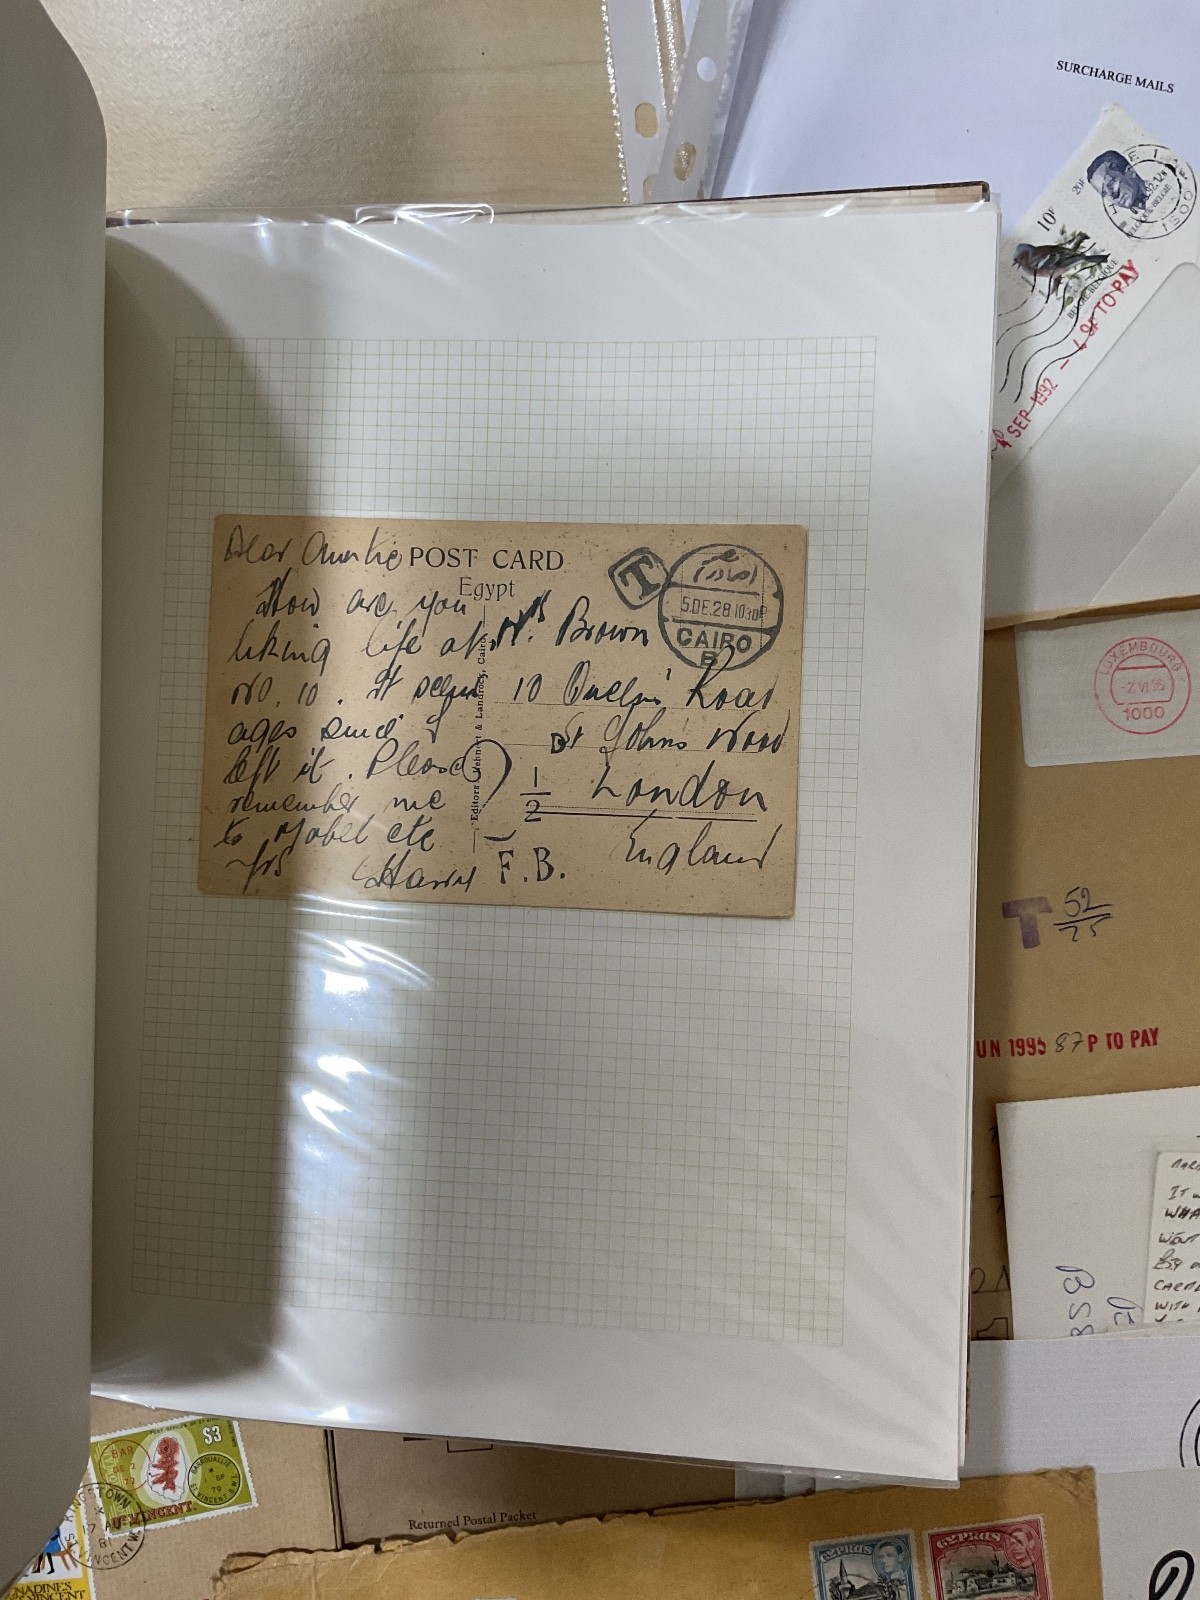 SURCHARGE MAILS
20F
10F
BELGIE-BELGIQUE
SEP 1992
TO PAY
Dear Auntie
POST CARD
Egypt
T
5.DE.28.1030P
CAIRO
B
How are you
liking life at
No. 10. It seems
ages since I
left it. Please
remember me
to Mabel etc
Yrs Harry
Editors: Lehnert & Landrock, Cairo
Mrs. Brown
10 Queens Road
St Johns Wood
London
England
1
2
F.B.
LUXEMBOURG
-2.VI.95
1000
T 52
25
UN 1995 87 P TO PAY
IT W
WHA
WENT
WITH
BS8
$3
BAR
BARROUALLIE
ST VINCENT W.I.
79
ST. VINCENT
KINGSTOWN
81
NADINES
VINCENT
Returned Postal Packet
CYPRUS
CYPRUS